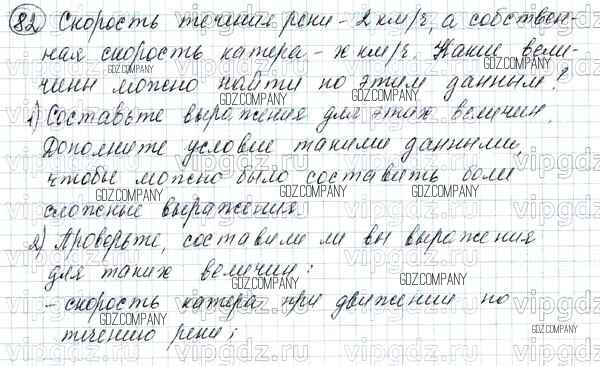 82) Скорость течения реки - 2 км/ч, а собствен-
ная скорость катера - х км/ч. Какие вели-
чины можно найти по этим данным?
1) Составьте выражения для этих величин.
Дополните условие такими данными,
чтобы можно было составить более
сложные выражения.
2) Проверьте, составили ли вы выражения
для таких величин:
- скорость катера при движении по
течению реки;